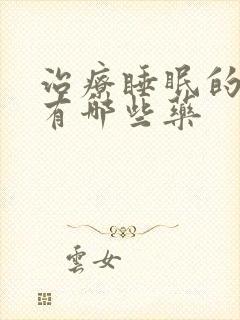 治療睡眠的
有哪些藥
雲女